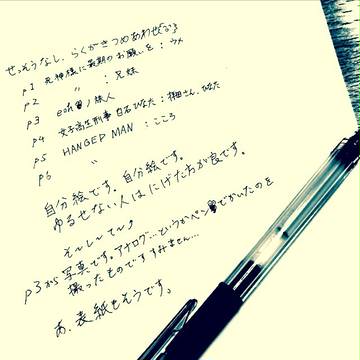 せっそうなし、らくがきつめあわせ
p1 死神様に最期のお願いを：ウメ
p2 〃 ：兄妹
p3 eahの旅人
p4 女子高生刑事 白石ひなた：棚田さん、ひなた
p5 HANGED MAN：こころ
p6 〃
自分絵です。自分絵です。
ゆるせない人はにげた方が良です。
そ～し～て～
p3から写真です。アナログ…というかペンでかいたのを
撮ったものですすみません…
あ、表紙もそうです。